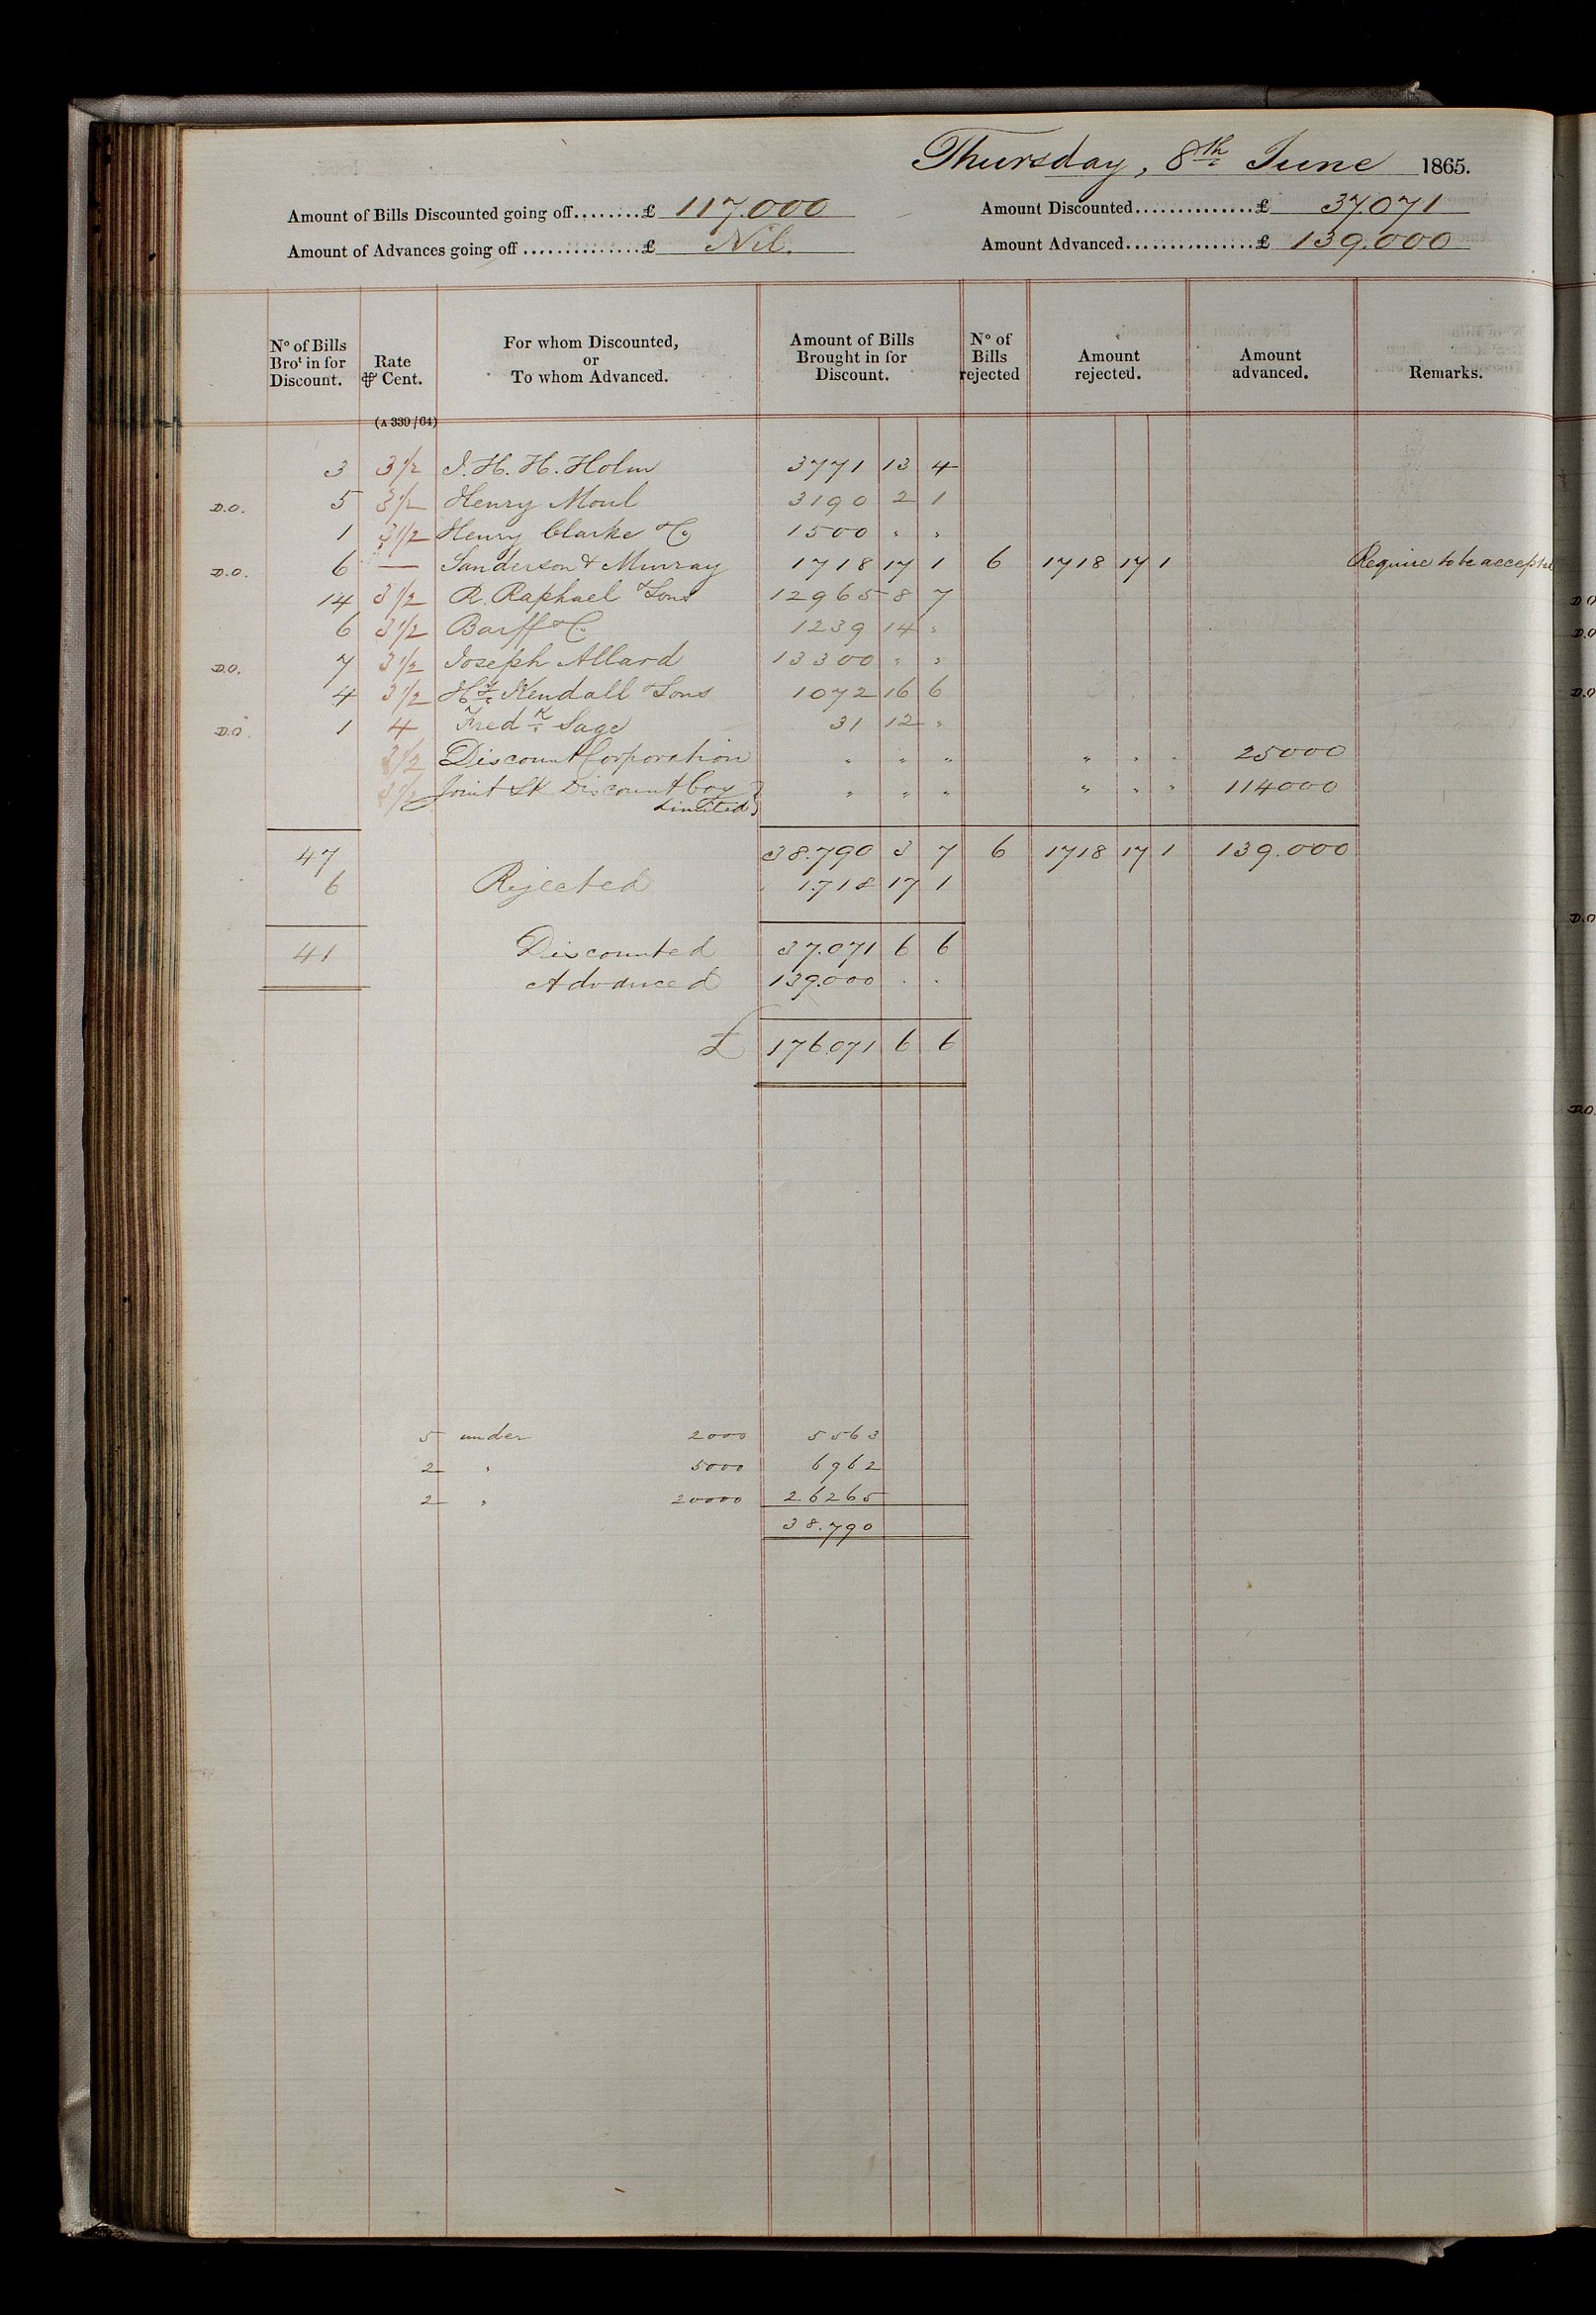 Thursday, 8th June 1865.
Amount of Bills Discounted going off........£ 117.000
Amount Discounted...............£ 37.071
Amount of Advances going off...............£ Nil.
Amount Advanced................£ 139.000
No of Bills Brot in for Discount. Rate ⅌ Cent. For whom Discounted, or To whom Advanced. Amount of Bills Brought in for Discount. No of Bills rejected Amount rejected. Amount advanced. Remarks.
(A 339/64)
3 3 1/2 J. H. H. Holm 3771 13 4
D.O. 5 3 1/2 Henry Moul 3190 2 1
1 3 1/2 Henry Clarke & Co 1500 " "
D.O. 6 — Sanderson & Murray 1718 17 1 6 1718 17 1 Require to be accepted
14 3 1/2 R. Raphael & Sons 12965 8 7
6 3 1/2 Barff & Co 1239 14 "
D.O. 7 3 1/2 Joseph Allard 13300 " "
4 3 1/2 Hy Kendall & Sons 1072 16 6
D.O. 1 4 Fredk Sage 31 12 "
3 1/2 Discount Corporation " " " " " " 25000
3 1/2 Joint Sk Discount Coy Limited } " " " " " " 114000
47 38.790 3 7 6 1718 17 1 139.000
6 Rejected 1.718 17 1
41 Discounted 37.071 6 6
Advanced 139.000 . .
£ 176.071 6 6
5 under 2000 5563
2 " 5000 6962
2 " 20000 26265
38.790